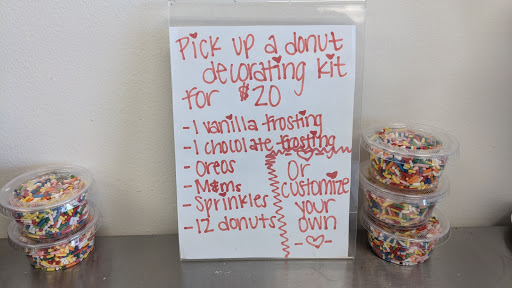 Pick up a donut
decorating kit
for $20
- 1 vanilla frosting
- 1 chocolate frosting
- Oreos
- M&ms
- Sprinkles
- 12 donuts
Or
customize
your
own
-♡-